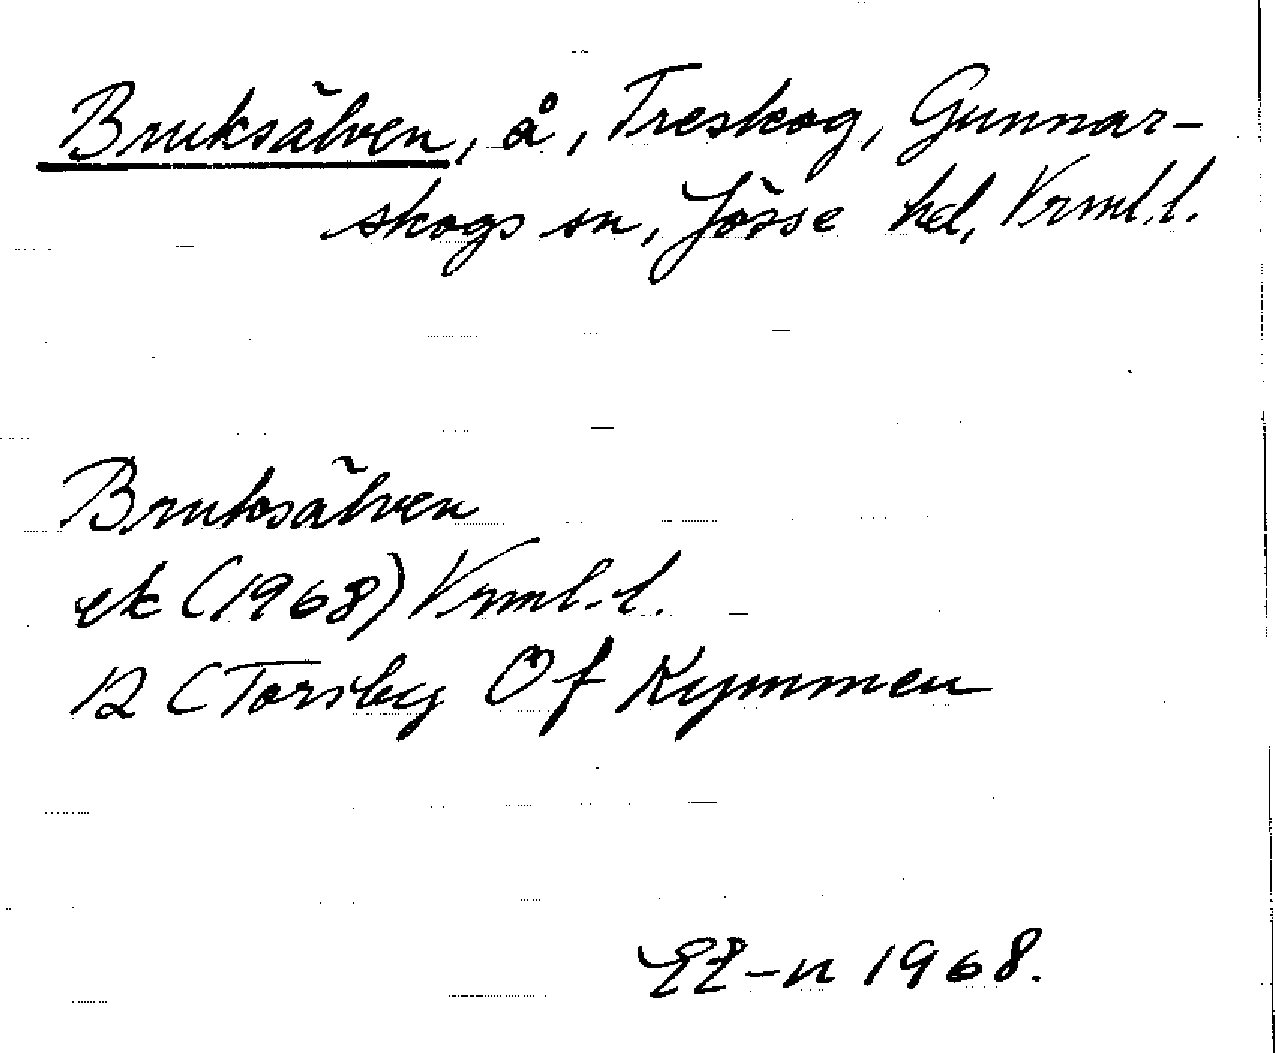 Bruksälven, å, Treskog, Gunnar-
skogs sn, Jösse hd, Vrml.l.
Bruksälven
ek (1968) Vrml.l.
12 C Torsby Öf Kymmen
1968.